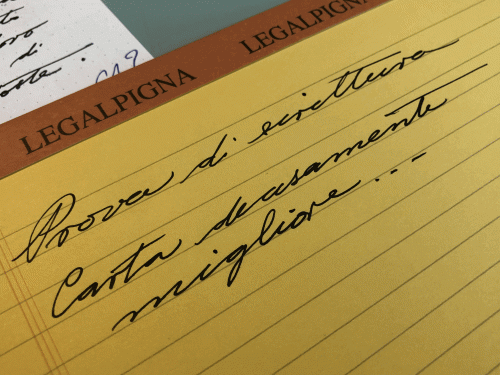 to
oro
di
oste.
LEGALPIGNA LEGALPIGNA
Prova di scrittura
Carta decisamente
migliore...